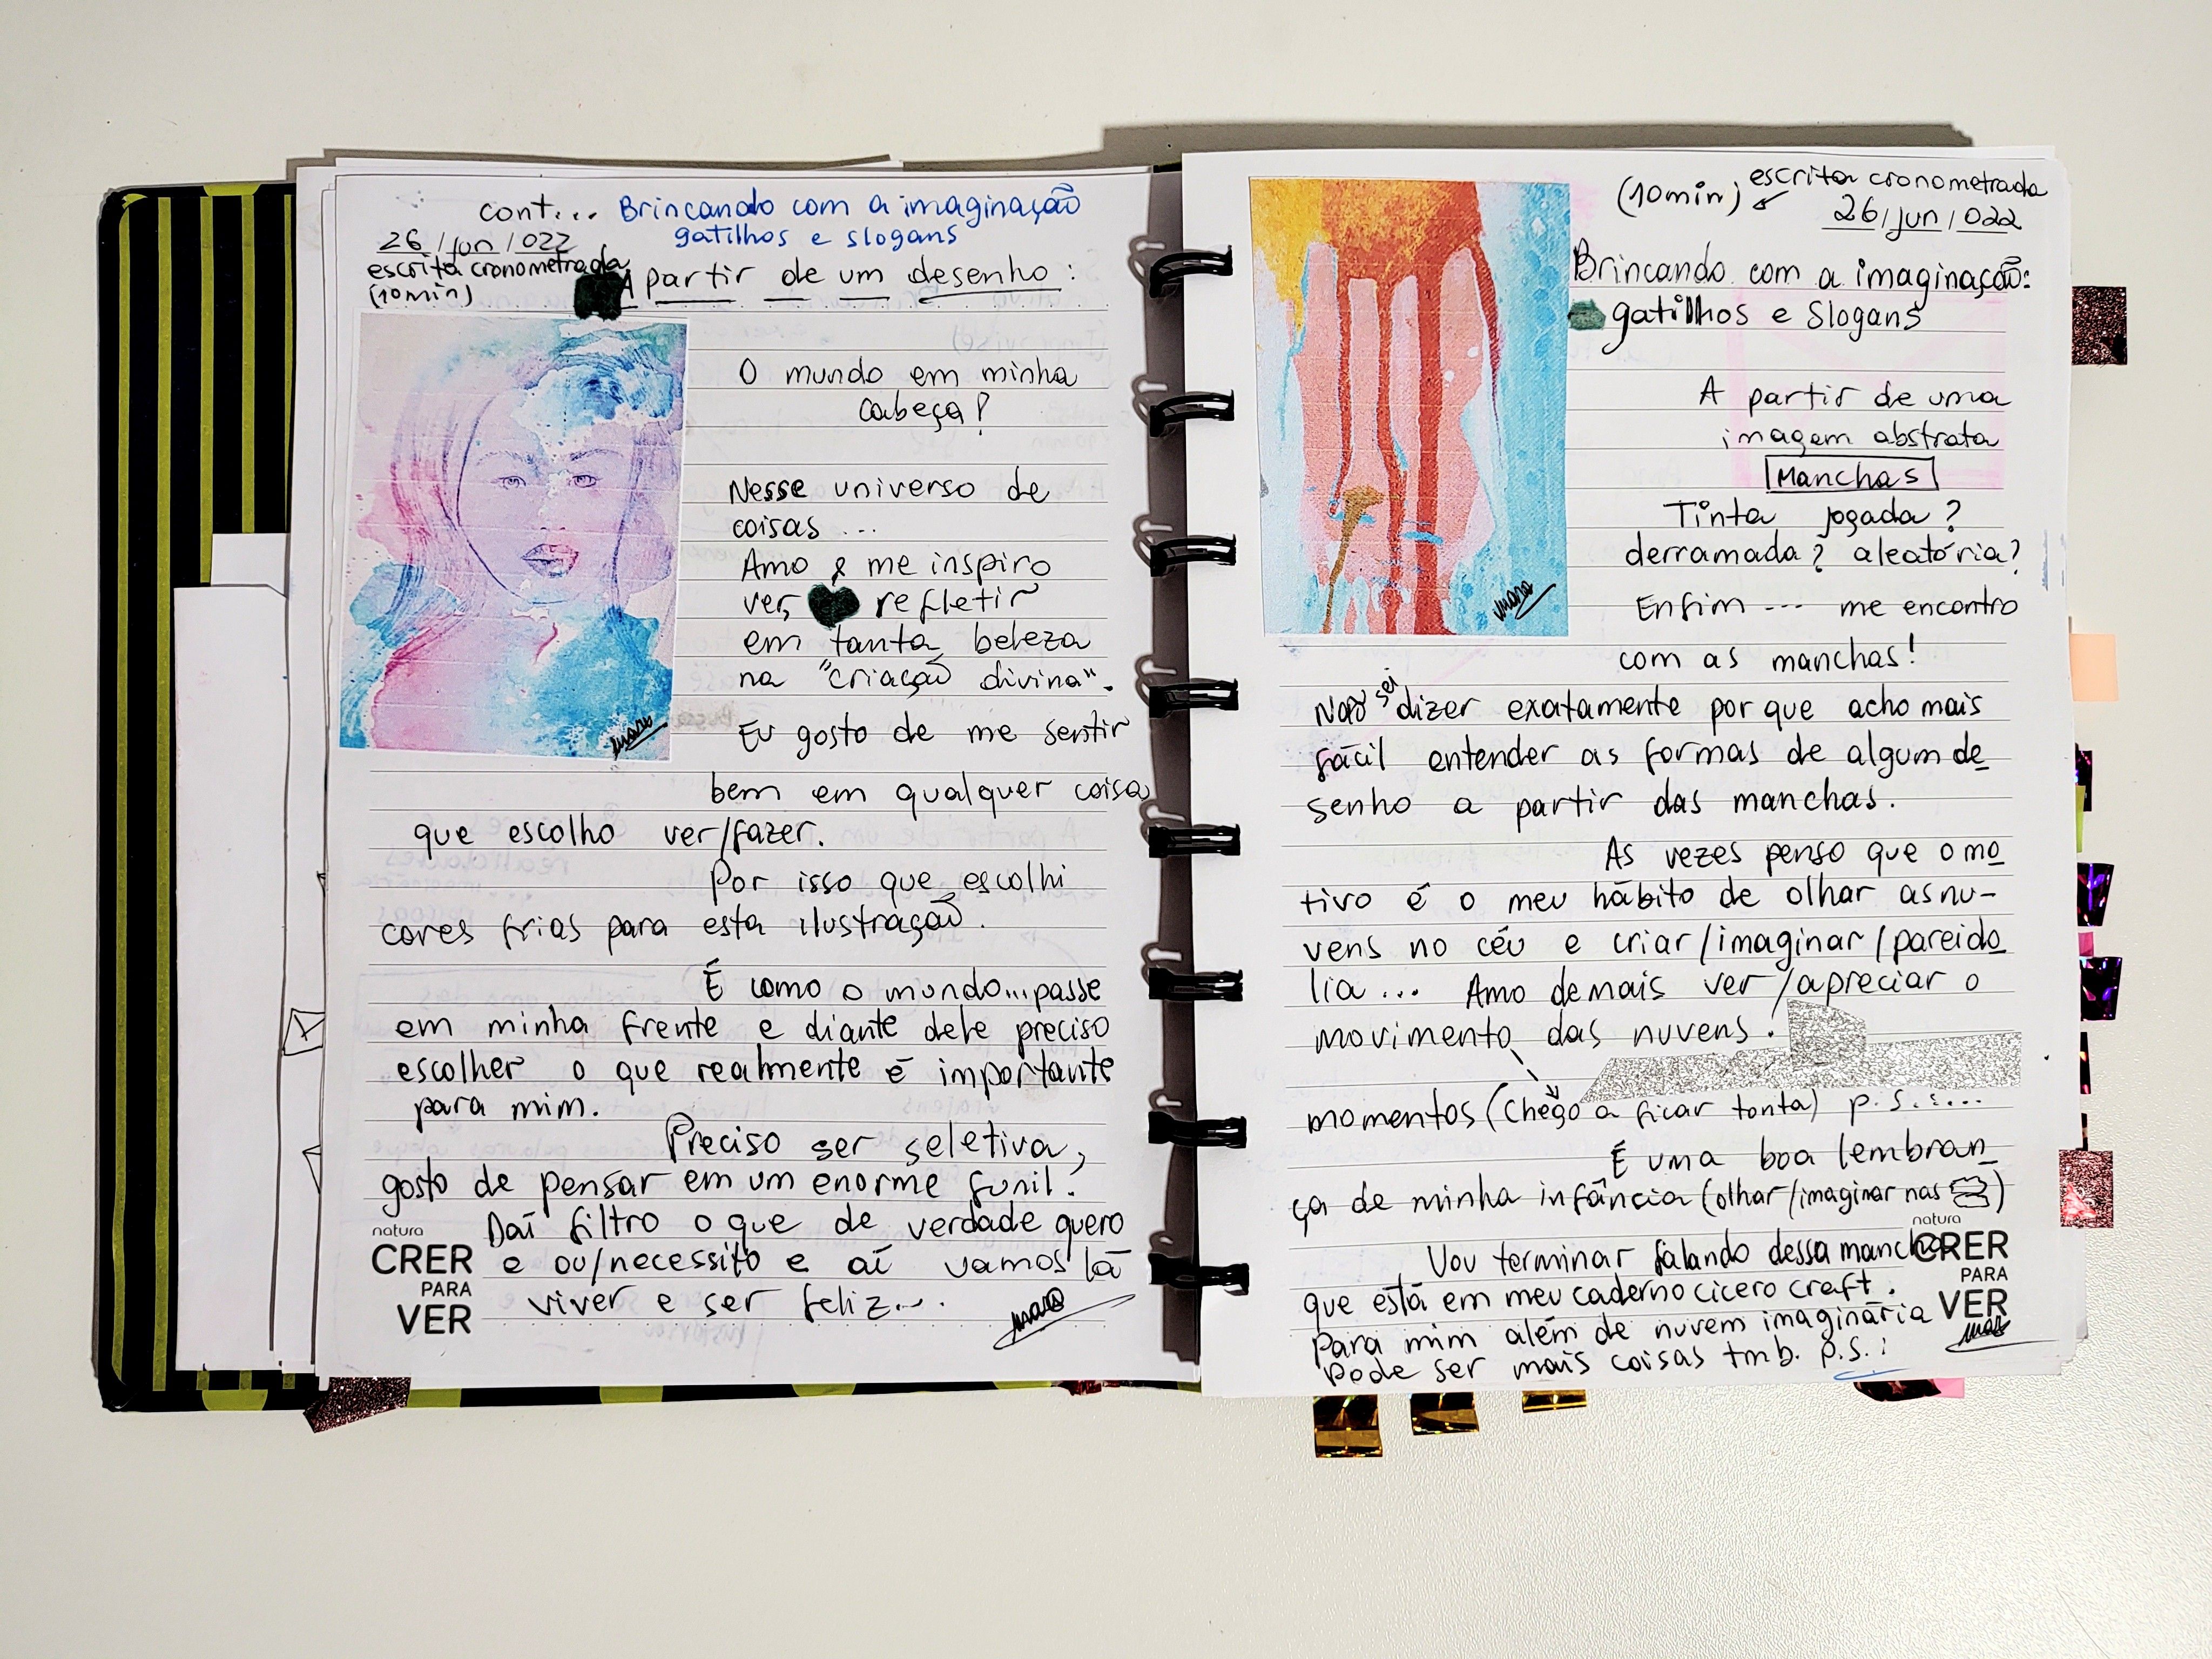 cont... Brincando com a imaginação
gatilhos e slogans
26/jun/022
escrita cronometrada
(10min)
A partir de um desenho:
O mundo em minha
cabeça!
Nesse universo de
coisas...
Amo e me inspiro
ver, refletir
em tanta beleza
na "criação divina".
Eu gosto de me sentir
bem em qualquer coisa
que escolho ver/fazer.
Por isso que escolhi
cores frias para esta ilustração.
É como o mundo...passe
em minha frente e diante dele preciso
escolher o que realmente é importante
para mim.
Preciso ser seletiva,
gosto de pensar em um enorme funil.
Daí filtro o que de verdade quero
e ou/necessito e aí vamos lá
viver e ser feliz...
natura
CRER
PARA
VER
(10min) escrita cronometrada
26/jun/022
Brincando com a imaginação:
gatilhos e Slogans
A partir de uma
imagem abstrata
Manchas
Tinta jogada?
derramada? aleatória?
Enfim --- me encontro
com as manchas!
Não sei dizer exatamente por que acho mais
fácil entender as formas de algum de
senho a partir das manchas.
As vezes penso que o mo
tivo é o meu hábito de olhar as nu-
vens no céu e criar/imaginar/pareido
lia... Amo demais ver/apreciar o
movimento das nuvens.
momentos (chego a ficar tonta) p.s.:...
É uma boa lembran
ça de minha infância (olhar/imaginar nas )
Vou terminar falando dessa mancha
que está em meu caderno cicero craft.
Para mim além de nuvem imaginária
Pode ser mais coisas tmb. p.s.:
natura
CRER
PARA
VER